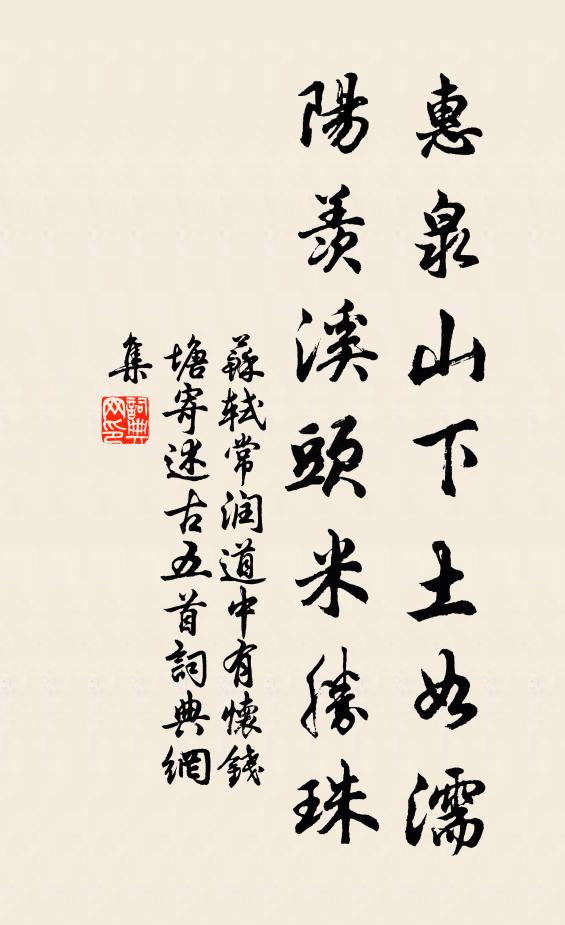 惠泉山下土如濡
陽羨溪頭米勝珠
蘇軾常润道中有懷錢
塘寄述古五首詞典網
集
詞典
网印